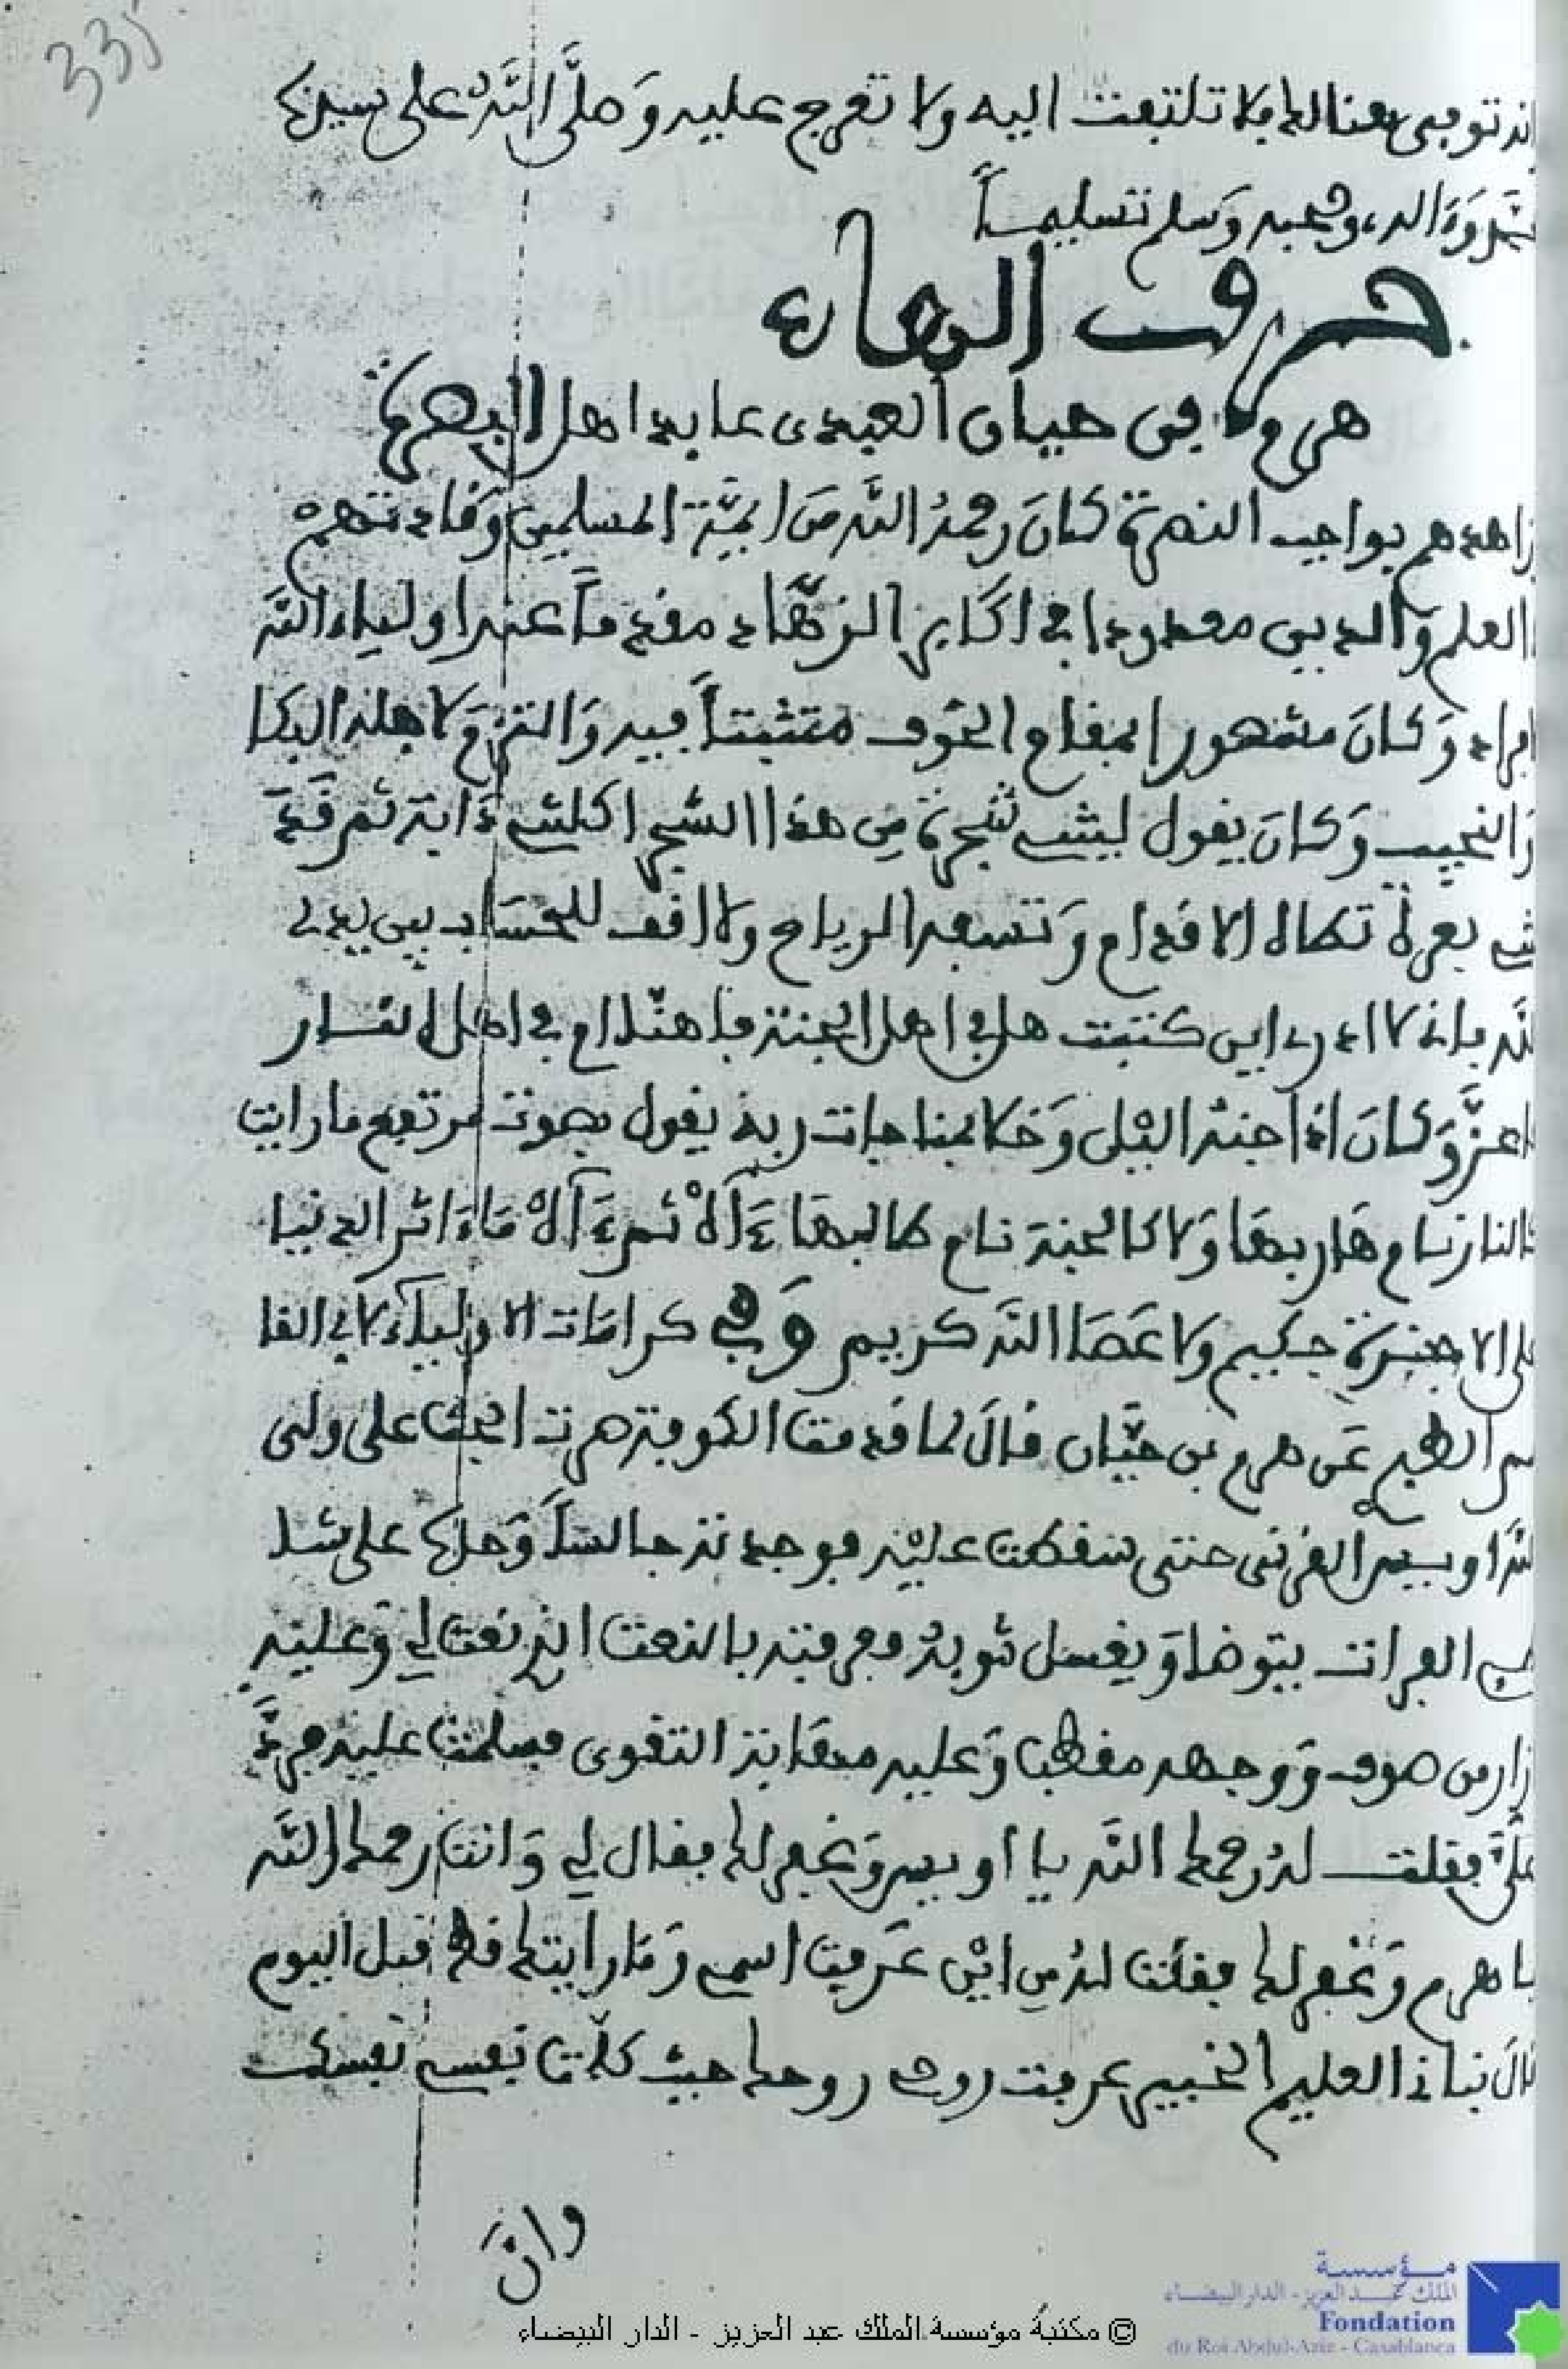 335
توفي هنالك فلا تلتفت اليه ولا تعرج عليه وَصلَّى اللَّهُ على سيدنا
وَءَاله وصحبه وَسلم تسليماً
حرف الهاء
هرم بن حيان العبدي عابد اهل البصرة
زاهدهم بواجب النصرة كانَ رحمهُ اللَّه منَ ايمَّة المسلمين وَقادتهم
العلم وَالدين معدودا في اكابر الزهَّاد مقدماً عند اولياء اللَّه
وَكانَ مشهورا بمقام الخوف متثبتاً فيه وَالتزم لاهله البكا
وَالنحيب وَكانَ يقول ليتني شجرة من هذا الشجر اكلتني دَابة ثم قذ
بعرة تطاها الاقدام وَتنسفه الرياح ولا اقف للحساب بين يدي
اللَّه فانه لا ادري اين كتبت هل في اهل الجنة فاهنَّا ام في اهل النار
وَكانَ اذا جنه اليْل وَخلا بمناجات ربه يقول بصوت مرتفع ما رايت
كالنار نام هَاربهَا وَلا كالجنة نام طالبهَا ءَالاْ ثم ءَالاْ مَا ءَاثر الدنيا
على الاخرة حكيم ولا عَصَا اللَّه كريم وَفي كرامَات الاوليآء لابي القا
سم الطبري عَن هرم بن حيَّان قالَ لما قدمت الكوفة صرت ابحث على ولي
اللَّه اويس القرني حتى سقطت عليْه فوجدته جالساً وَحده على شا
طي الفرات يتوضا وَيغسل ثوبهُ فعرفته بالنعت الذي نعت لي وَعليْه
ازار من صوف وَوجهه مقطبا وَعليه مهَابة التقوى فسلمت عليه فردَّ
علىَّ فقلت لهُ رحمك اللَّه يا اويس وَغفر لك فقال لي وَانت رحمك اللَّه
يا هرم وَغفر لك فقلت لهُ من ايْن عَرفت اسمي وَمَا رايتك قط قبل اليوم
قالَ نباني العليم الخبير عرفت روحي روحك حيث كلمت نفسي نفسك
وانَّ
© مكتبة مؤسسة الملك عبد العزيز - الدار البيضاء
مؤسسة
الملك عبد العزيز - الدار البيضاء
Fondation
du Roi Abdul-Aziz - Casablanca